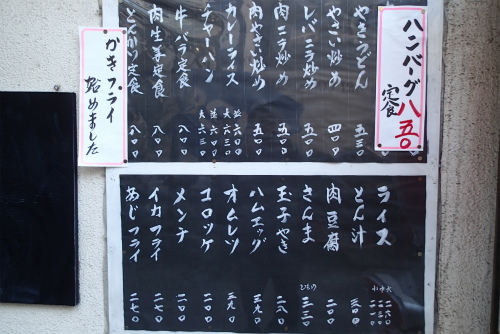 ハンバーグ
定食
八五〇
やきうどん
やさい炒め
四〇〇
レバニラ炒め
五〇〇
肉ニラ炒め
五〇〇
肉やさい炒め
五〇〇
カレーライス
並 六〇〇
大 六三〇
チャーハン
並 六〇〇
大 六三〇
牛バラ定食
八〇〇
肉生姜定食
八〇〇
とんかつ定食
八〇〇
かきフライ
始めました
ライス
小 中 大
とん汁
三〇〇
肉豆腐
二〇〇
さんま
三三〇
玉子やき
二八〇
ハムエッグ
三九〇
オムレツ
三九〇
コロッケ
二〇〇
メンチ
二〇〇
イカフライ
二七〇
あじフライ
二七〇